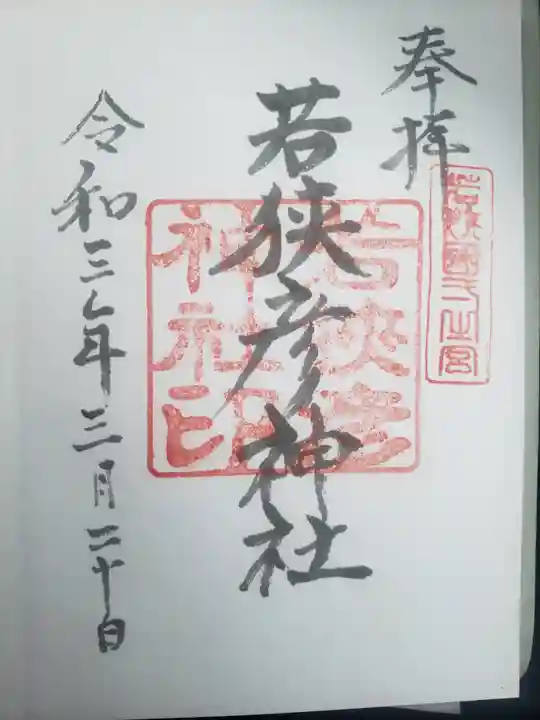 奉拝
若狭國一之宮
若狭彦神社
若狭彦
神社印
令和三年三月二十日